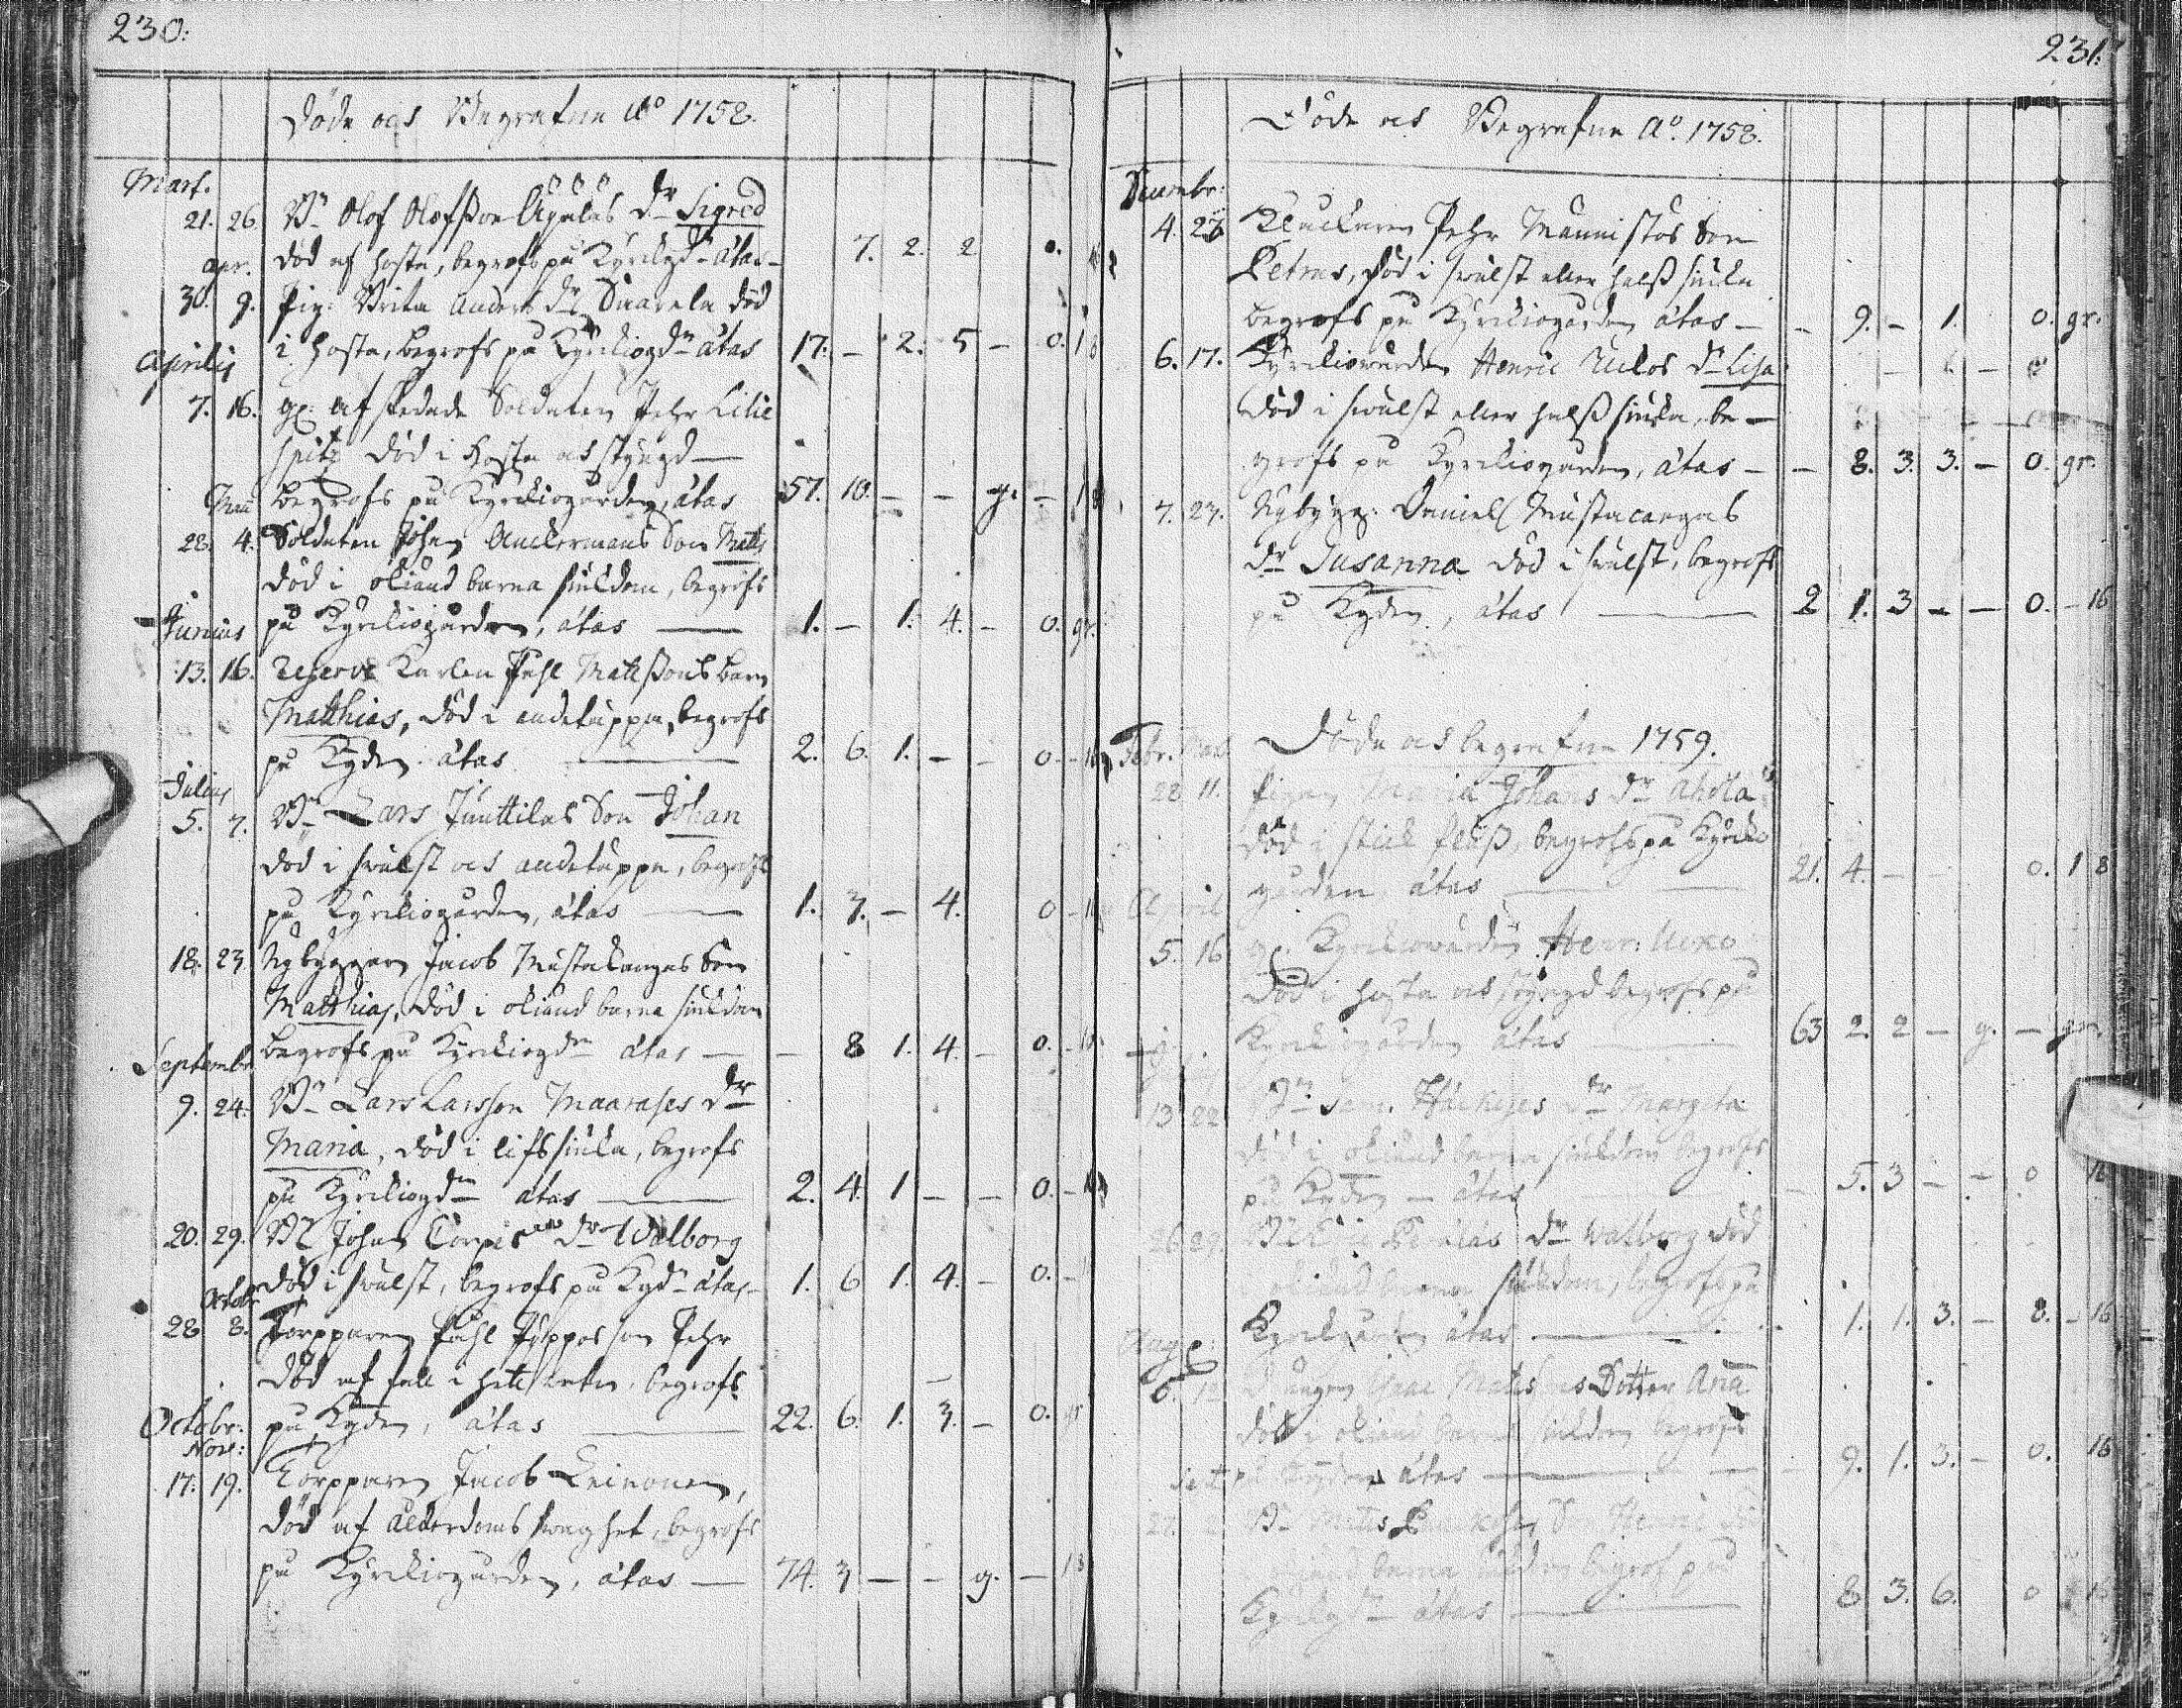 230:
Döde ocs Begrafne Ao 1758.
Mart.
21. 26. Bn Olof Olofsson dr Sigred
död af hosta, begrofs på Kyrckgdn åtas - 7. 2. 2 0.
apr.
30. 9. Pig: Brita Anders dr Saarela död
i hosta, begrofs på Kyrckiogdn åtas 17. - 2. 5 - 0. 18
Aprilis
7. 16. gl: afskedade Soldaten Pehr Lilie
spitz död i Hosta ocs styngd
Maii begrofs på Kyrckiogården, åtas 57. 10. - - g. - 18
28. 4. Soldaten Johan Anckermans Son Matts
död i okiänd barna siukdom, begrofs
Junius på Kyrckiogården, åtas 1. - 1. 4. - 0. gr.
13. 16. Reserve Karlen Påhl Mattssons barn
Matthias, död i andetäppa, begrofs
på Kgden åtas 2. 6. 1. - - 0. - 16
Julius
5. 7. Bn Lars Junttilas Son Johan
död i swulst ocs andetäppa, begrofs
på Kyrckiogården, åtas 1. 7. - 4. 0 -
18. 23 Nybyggaren Jacob Mustakangas Son
Matthias, död i okiänd barna siukdom
begrofs på Kyrckiogdn åtas - - 8 1. 4. - 0. -
Septembr
9. 24. Bn Lars Larsson Maarases dr
Maria, död i lifssiuka, begrofs
på Kyrckiogdn åtas 2. 4. 1 - - 0. -
20. 29. Bn Johan Törpes dr Walborg
död i swulst, begrofs på Kgdn åtas - 1. 6 1. 4. - 0. -
Octobr
28 8. Torpparen Påhl Pyppös son Pehr
död af fall i hett watn, begrofs
Octobr: på Kgden, åtas 22. 6. 1. 3. - 0. gr
Nov:
17. 19. Torpparen Jacob Leinonen,
död af ålderdoms swaghet, begrofs
på Kyrckiogården, åtas 74. 3 - - g. - 18
231.
Döde ocs Begrafne Ao. 1758.
Decembr:
4. 27 Kluckaren Pehr Mannistos Son
Petrus, död i swulst eller halss siuka
begrofs på Kyrckiogården åtas - - 9. - 1. 0. gr.
6. 17. Kyrckiowärden Henric Ulkos dr Lisa
död i swulst eller halss siuka, be-
grofs på Kyrckiogården, åtas - - 8. 3. 3. - 0. gr.
7. 27. Nybygg: Daniel Mustacangas
dr Susanna död i swulst, begrofs
på Kgden, åtas 2 1. 3 - - 0. - 16
Döde ocs begrafne 1759.
Febr. Mart
28 11. Pigan Maria Johans dr Ahola
död i stick fluss, begrofs på Kyrckio
gården åtas 21. 4. - - 0. 18
April
5. 16 gl. Kyrckiowärden Henr: Ucko
död i hosta ocs styngd begrofs på
Kyrckiogården åtas 63 2. 2 - g. - gr.
13 22 Bn Sam. dr Margeta
död i okiänd barna siukdom begrofs
på Kgden - åtas - 5. 3 - - 0 16
26 29. Bn dr Walborg död
i okiänd barna siukdom, begrofs på
Kyrckgården åtas 1. 1. 3. - 0. - 16
Aug
6. 12 Isaac Matssons Dotter Ana
död i okiänd barna siukdom begrofs
Sept på Kgden åtas - 9. 1. 3. - 0. 16
27. 2. Bn Matts Son Henric
barna siukdom begrofs på
Kyrckgdn åtas 8 3. 6. 0 16